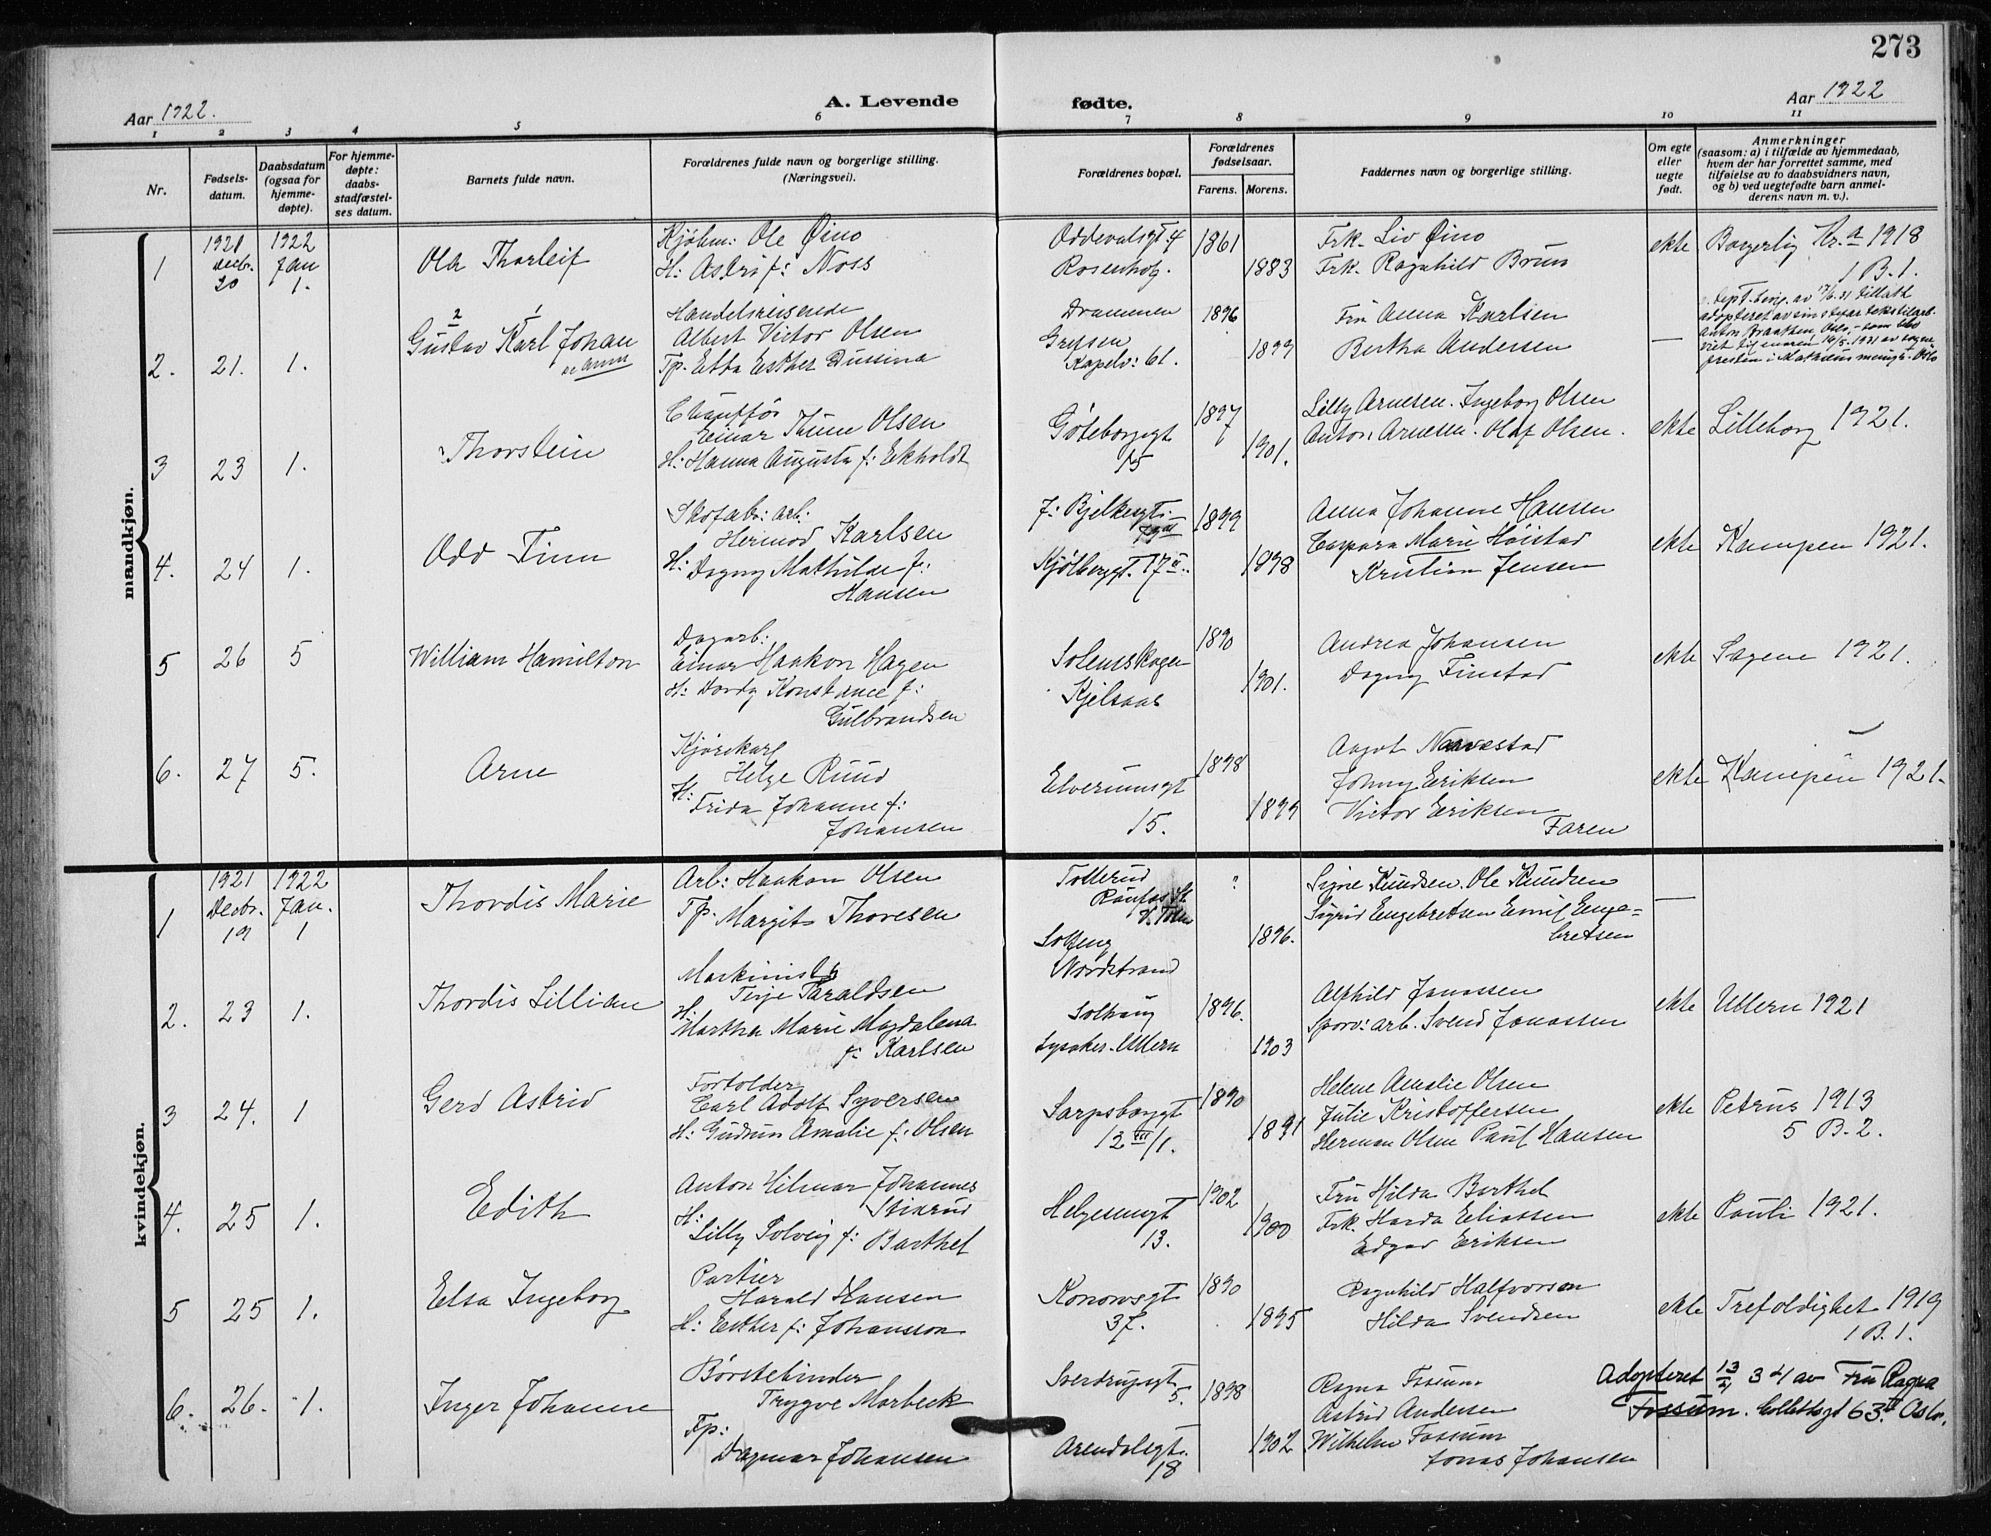 273
Aar 1922.
A. Levende
fødte.
Aar 1922
1 2 3 4 5 6 7 8 9 10 11
Nr.
Fødsels-
datum.
Daabsdatum
(ogsaa for
hjemme-
døpte).
For hjemme-
døpte:
daabs-
stadfæstel-
ses datum.
Barnets fulde navn.
Forældrenes fulde navn og borgerlige stilling.
(Næringsvei).
Forældrenes bopæl.
Forældrenes
fødselsaar.
Farens. Morens.
Faddernes navn og borgerlige stilling.
Om egte
eller
uegte
født.
Anmerkninger
(saasom: a) i tilfælde av hjemmedaab,
hvem der har forrettet samme, med
tilføielse av to daabsvidners navn,
og b) ved uegtefødte barn anmel-
derens navn m. v.).
mandkjøn.
1
1921
Decbr.
20
1922
Jan
1.
Ola Thorleif
Kjøbm: Ole Øino
H: Astri f: Noss
Oddevalsgt. 4
Rosenhof.
1861
1883
Frk. Liv Øino
Frk. Ragnhild Bruun
ekte
Borgerlig 1918
1 B. 1.
2.
21.
1.
2 1
Gustav Karl Johan
Handelsreisende
Albert Victor Olsen
Tp. Etta Esther
Drammen
Kapelv: 61.
1896
1899
Fru Anna Karlsen
Bertha Andersen
—
adopteret av sin stefar
3
23
1.
Thorstein
Chauffør
Einar Thune Olsen
H: Hanna Augusta f: Ekholdt
Gøteborggt
15
1897
1901.
Lilly Arnesen. Ingeborg Olsen
Anton Arnesen. Olaf Olsen.
ekte
Lilleborg 1921.
4.
24
1.
Odd Finn
Skofabr: arb:
Hermod Karlsen
H: Dagny Mathilde f:
Hansen
f: Bjelkesgt:
Kjølberggt. 17 II.
1899
1898
Anna Johanne Hansen
Caspara Marie Høistad
Kristian Jensen
ekte
Kampen 1921.
5
26
5
William Hamilton
Dagarb:
Einar Haakon Hagen
H: Dordy Konstance f:
Gulbrandsen
Solemskogen
Kjelsaas
1890
1901.
Andrea Johansen
Dagny Finstad
ekte
Sagene 1921.
6.
27
5.
Arne
Kjørekarl
Helge Ruud
H:
Frida Johanne f:
Johansen
Elverumsgt
15.
1898
1899
Aagot Navestad
Johny Eriksen
Victor Eriksen
Faren
ekte
Kampen 1921.
kvindekjøn.
1
1921
Decbr.
19
1922
Jan.
1
Thordis Marie
Arb: Haakon Olsen
Tp. Margit Thoresen
Tollerud
Raufoss St
V. Toten
Solfeng
Nordstrand
?
1896.
Signe Knudsen. Ole Knudsen
Sigrid Engebretsen Emil Enge-
bretsen
—
2.
23
1.
Thordis Lillian
Maskinist
Terje Taraldsen
H:
Martha Marie Magdalena
f: Karlsen
Solhaug
Lysaker. Ullern
1896.
1903
Alfhild Jonassen
Sporv: arb. Svend Jonassen
ekte
Ullern 1921
3
24.
1
Gerd Astrid
Fortolder
Carl Adolf Syversen
H: Gudrun Amalie f: Olsen
Sarpsborggt
12 III/1.
1890
1891
Helene Amalie Olsen
Julie Kristoffersen
Herman Olsen Paul Hansen
ekte
Petrus 1913
5 B. 2.
4.
25
1.
Edith
Anton Hilmar Johannes
Stixrud
H:
Lilly Solveig f: Barthel
Helgesensgt
13.
1902
1900
Fru Hilda Barthel
Frk. Harda Eliassen
Edgar Eriksen
ekte
Pauli 1921.
5
25
1.
Elsa Ingeborg
Portier
Harald Hansen
H: Esther f: Johansson
Konowsgt
37.
1890
1895
Ragnhild Halfvorsen
Hilda Svendsen
ekte
Trefoldighet 1919
1 B. 1.
6.
26.
1.
Inger Johanne
Børstebinder
Trygve Morbeck
Fp:
Dagmar Johansen
Sverdrupsgt.
5.
Arendalsgt.
18
1898
1902
Ragna Fossum
Astrid Andersen
Wilhelm Fossum
Jonas Johansen
Adopteret 13/4 34 av Fru Ragna
Fossum. Collettsgt 63 IV Oslo.